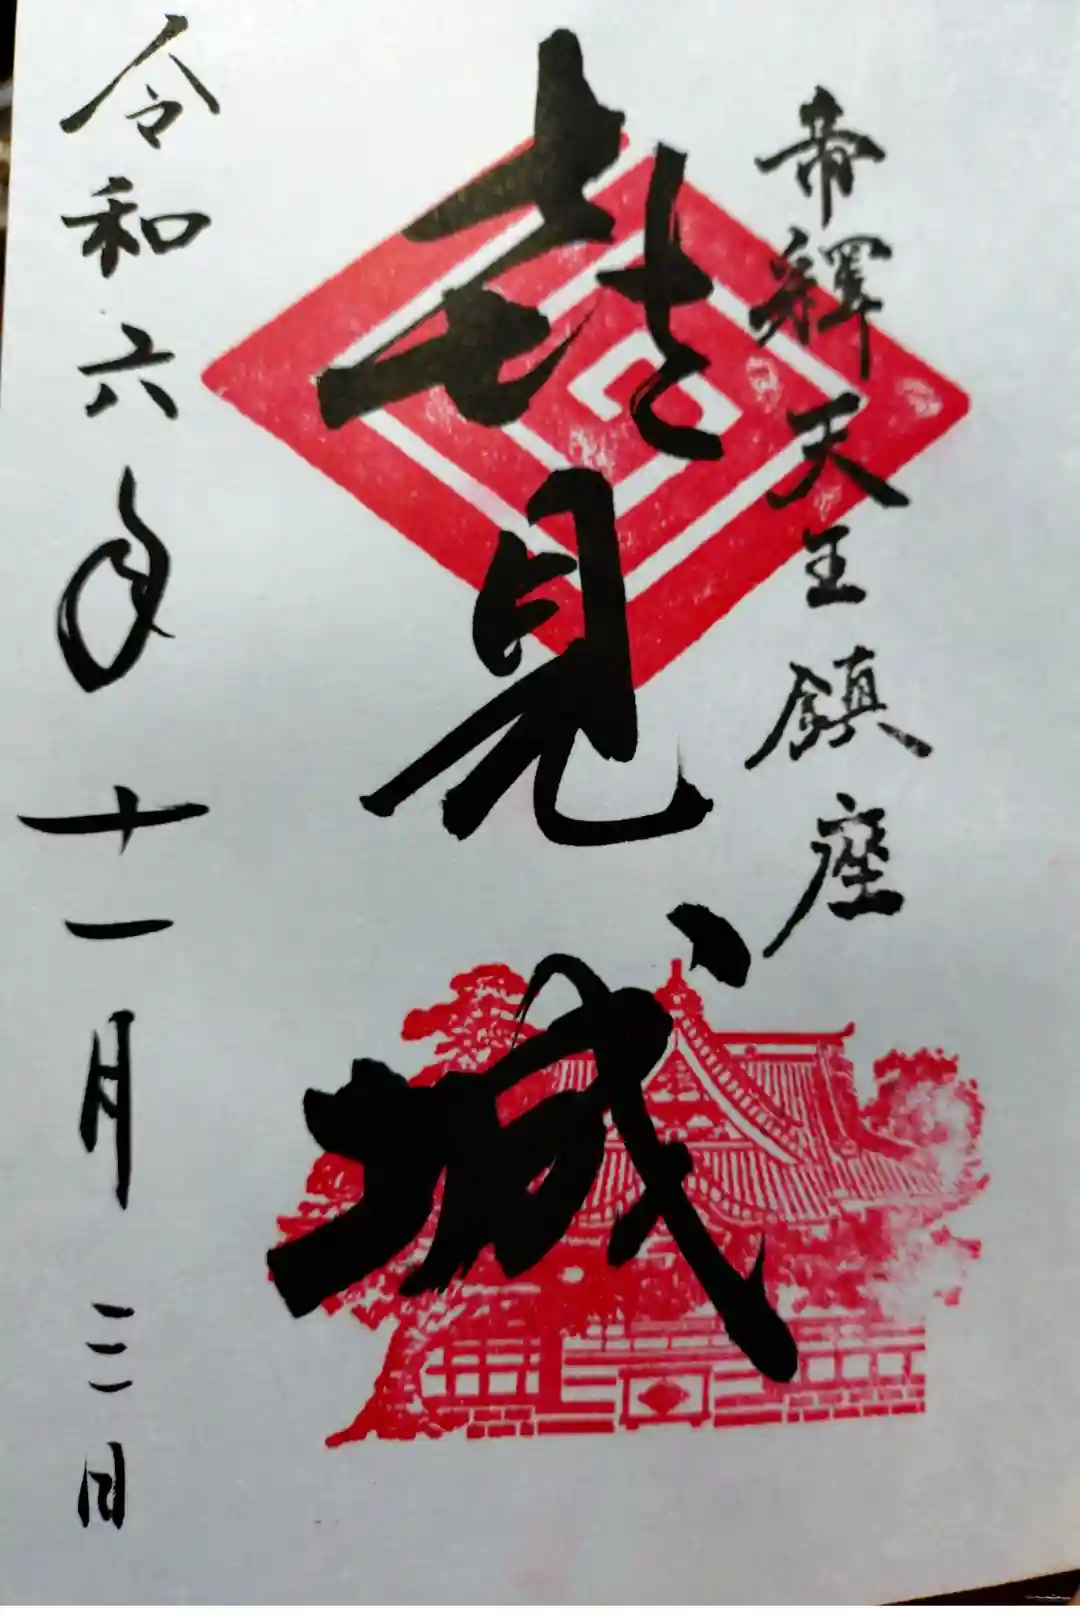 帝釋天王鎮座
喜見城
令和六年十一月三日